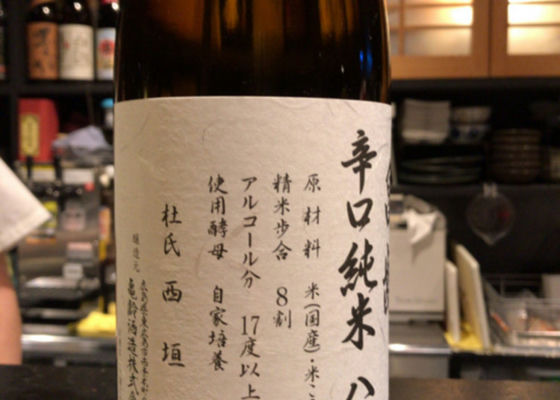 辛口純米 八
原材料 米(国産)・米こ
精米歩合 8割
アルコール分 17度以上
使用酵母 自家培養
杜氏 西垣
醸造元
亀齢酒造株式会